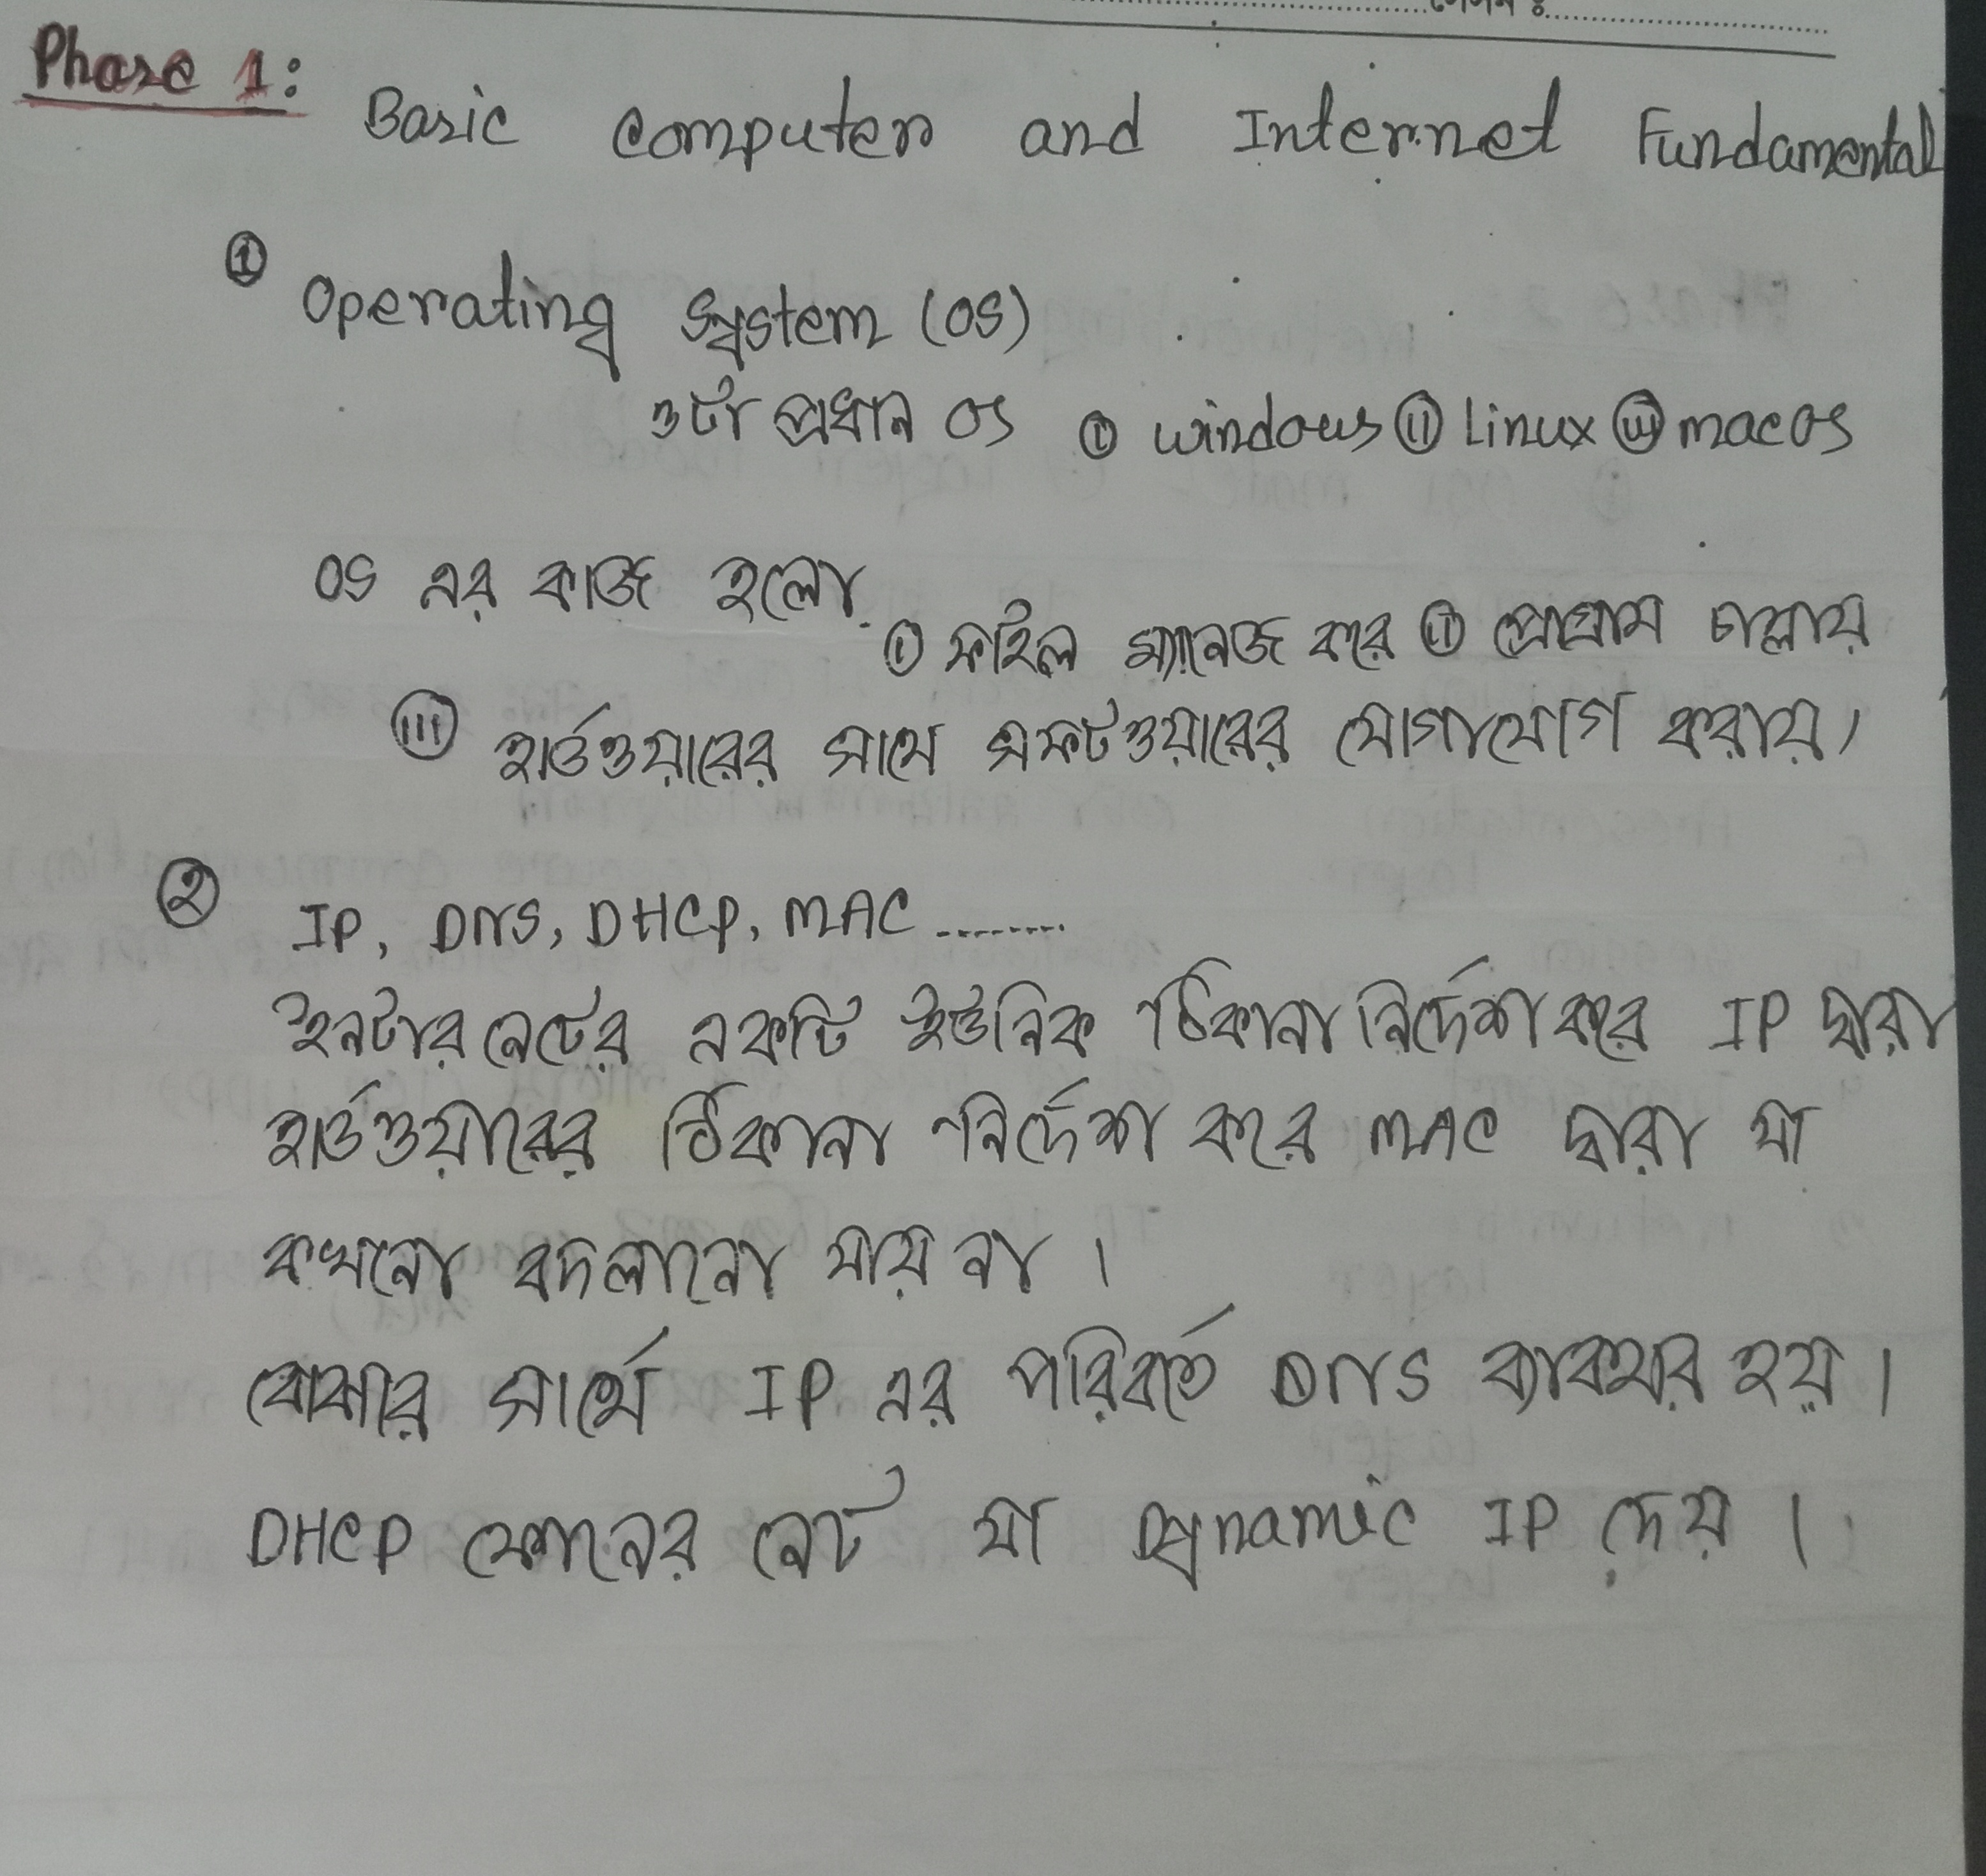 Phase 1: Basic computer and Internet Fundamental
① Operating System (OS)
৩টা প্রধান OS ⓘ windows ⓘⓘ Linux ⓘⓘⓘ macOS
OS এর কাজ হলো
ⓘ ফাইল ম্যানেজ করে ⓘⓘ প্রোগ্রাম চালায়
ⓘⓘⓘ হার্ডওয়ারের সাথে সফটওয়ারের যোগাযোগ করায়।
② IP, DNS, DHCP, MAC ........
ইনটারনেটের একটি ইউনিক ঠিকানা নির্দেশ করে IP দ্বারা
হার্ডওয়ারের ঠিকানা নির্দেশ করে MAC দ্বারা যা
কখনো বদলানো যায় না।
বোঝার সার্থে IP এর পরিবর্তে DNS ব্যাবহার হয়।
DHCP ফোনের নেট যা Dynamic IP দেয়।